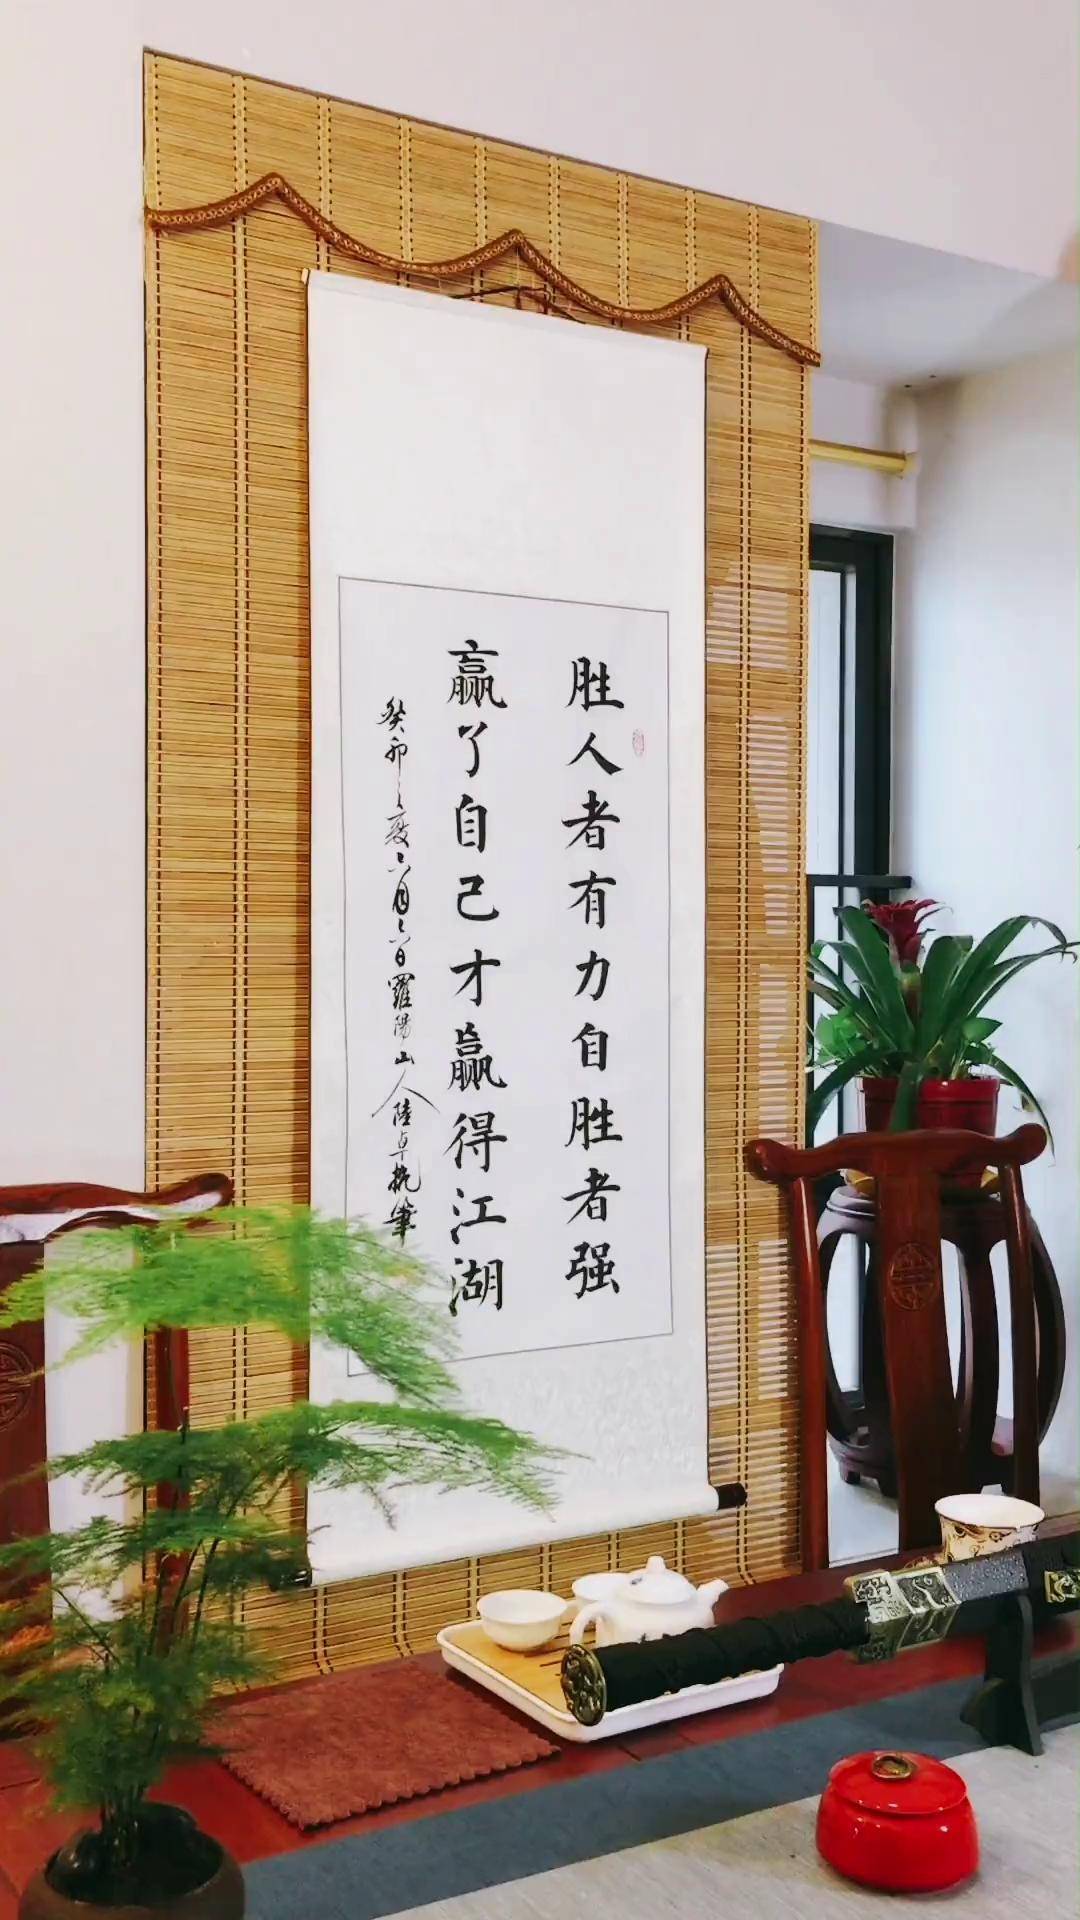 胜人者有力自胜者强
赢了自己才赢得江湖
癸卯之夏六月六日羅陽山人陸卓執筆